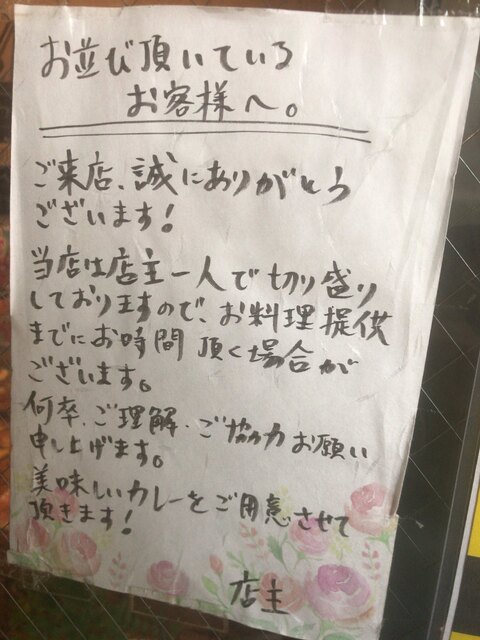 お並び頂いている
お客様へ。
ご来店、誠にありがとう
ございます！
当店は店主一人で切り盛り
しておりますので、お料理提供
までにお時間頂く場合が
ございます。
何卒、ご理解、ご協力お願い
申し上げます。
美味しいカレーをご用意させて
頂きます！
店主